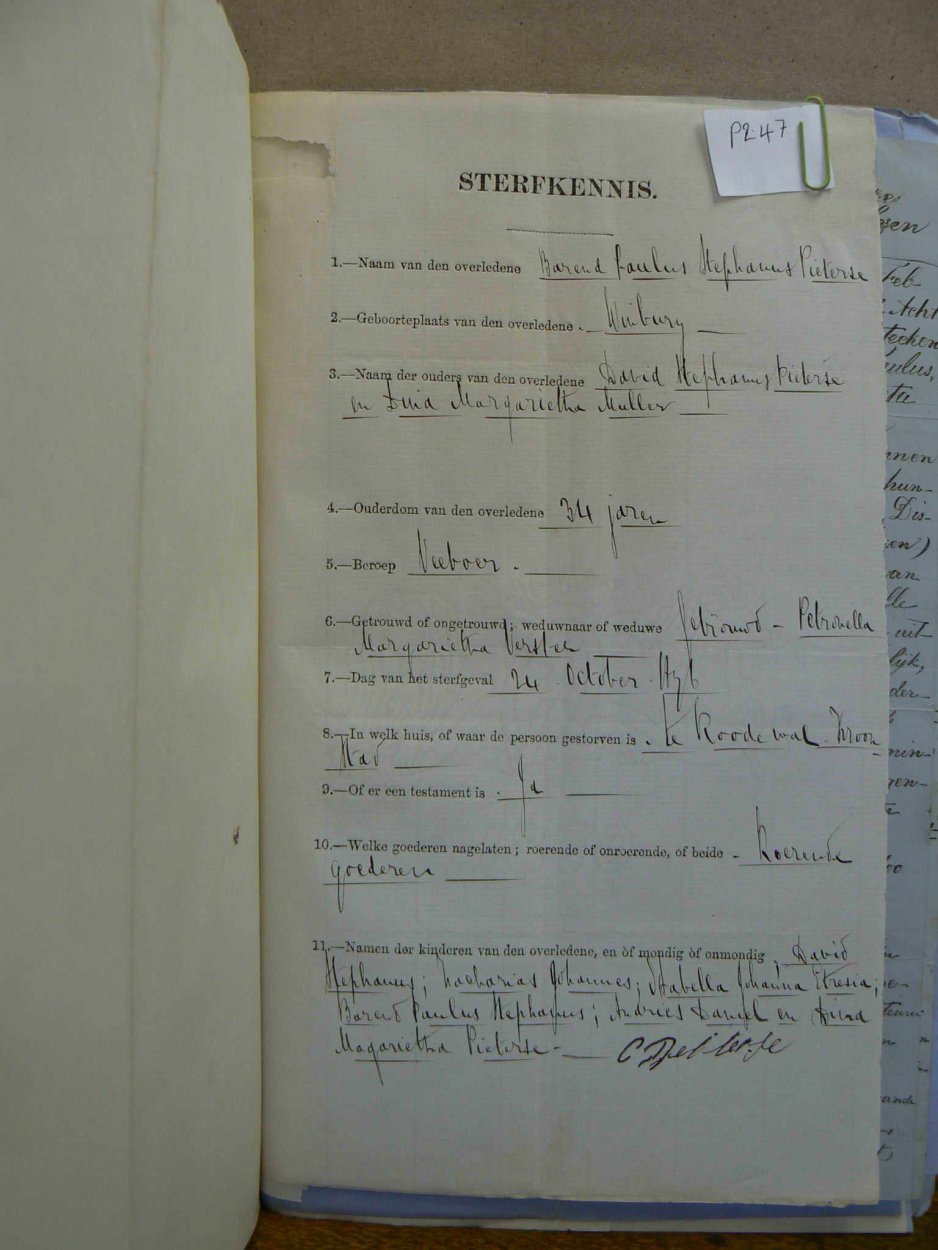 P2.47
STERFKENNIS.
1.—Naam van den overledene Barend Paulus Stephanus Pieterse
2.—Geboorteplaats van den overledene. Winburg
3.—Naam der ouders van den overledene David Stephanus Pieterse
en Dina Margarietha Muller
4.—Ouderdom van den overledene 34 jaren
5.—Beroep Veeboer.
6.—Getrouwd of ongetrouwd; weduwnaar of weduwe Getrouwd – Petronella
Margarietha
7.—Dag van het sterfgeval 24 October
8.—In welk huis, of waar de persoon gestorven is . te Roodewal. Kroon
stad
9.—Of er een testament is . Ja
10.—Welke goederen nagelaten; roerende of onroerende, of beide – Roerende
goederen
11.—Namen der kinderen van den overledene, en òf mondig òf onmondig . David
Stephanus; Zacharias Johannes; Isabella Johanna
Barend Paulus Stephanus; Andries Daniel en Dina
Magarietha Pieterse –